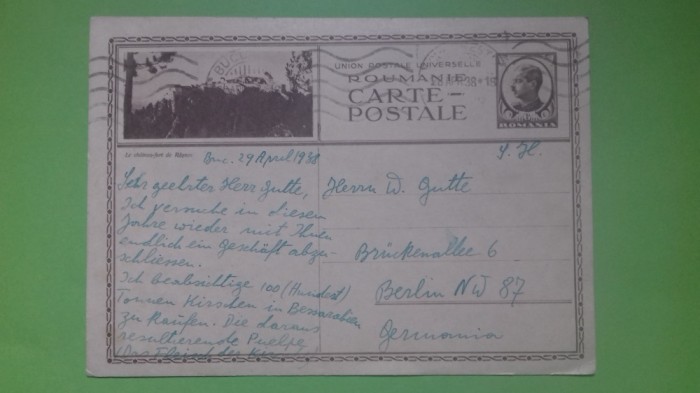 UNION POSTALE UNIVERSELLE
ROUMANIE
CARTE
POSTALE
ROMANIA
Le château-fort de Râșnov
Buc. 29 April 1938
S. H.
Sehr geehrter Herr Gutte,
Ich versuche in diesem
Jahre wieder mit Ihnen
endlich ein Geschäft abzu-
schliessen.
Ich beabsichtige 100 (Hundert)
Tonnen Kirschen in Bessarabien
zu kaufen. Die daraus
resultierende Puelpe
(Das Fleisch der
Herrn W. Gutte
Brückenallee 6
Berlin NW 87
Germania